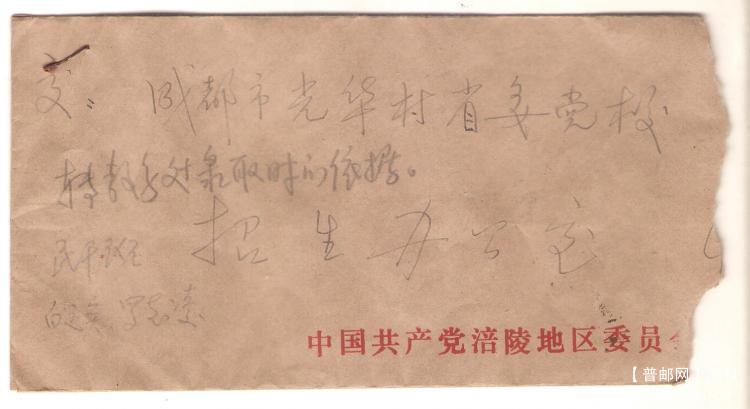 交: 成都市光华村省委党校
转教务处录取时的依据。
招生办公室
民干班
中国共产党涪陵地区委员
【普邮网